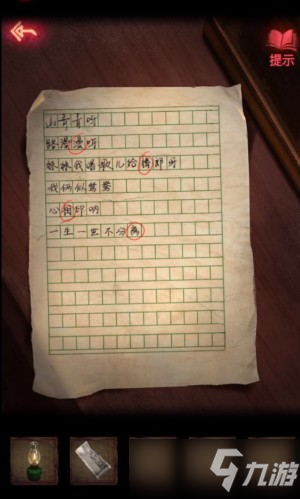 提示
山青青呀
路漫漫呀
妹妹我唱歌儿给情郎听
我俩似鸳鸯
心相印呐
一生一世不分离
九游